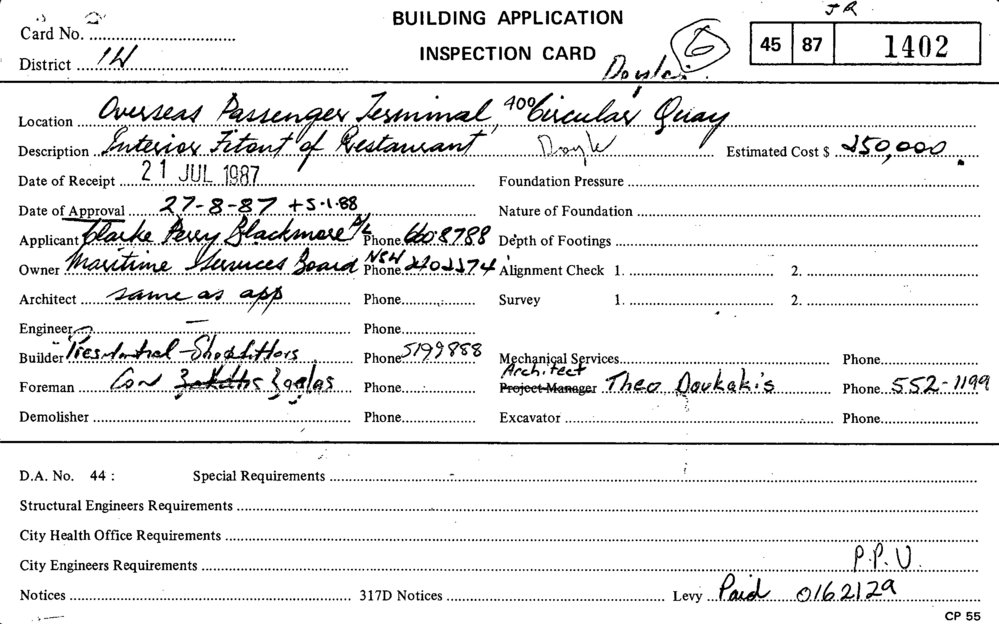 JR
Card No.
BUILDING APPLICATION
45 87 1402
District 1H
INSPECTION CARD
Location Overseas Passenger Terminal, 400 Circular Quay
Description Interior Fitout of Restaurant Doyle Estimated Cost $ 250,000.
Date of Receipt 21 JUL 1987 Foundation Pressure
Date of Approval 27-8-87 + 5.1.88 Nature of Foundation
Applicant Clarke Perry Blackmore P/L Phone 660 8788 Depth of Footings
Owner Maritime Services Board NSW Phone 2402274 Alignment Check 1. 2.
Architect same as app Phone Survey 1. 2.
Engineer — Phone
Builder Presidential Shopfitters Phone 5199888 Mechanical Services Phone
Architect
Foreman Con Phone Project Manager Theo Doukakis Phone 552-1199
Demolisher Phone Excavator Phone
D.A. No. 44 : Special Requirements
Structural Engineers Requirements
City Health Office Requirements
City Engineers Requirements P.P.U
Notices 317D Notices Levy Paid 0162129
CP 55